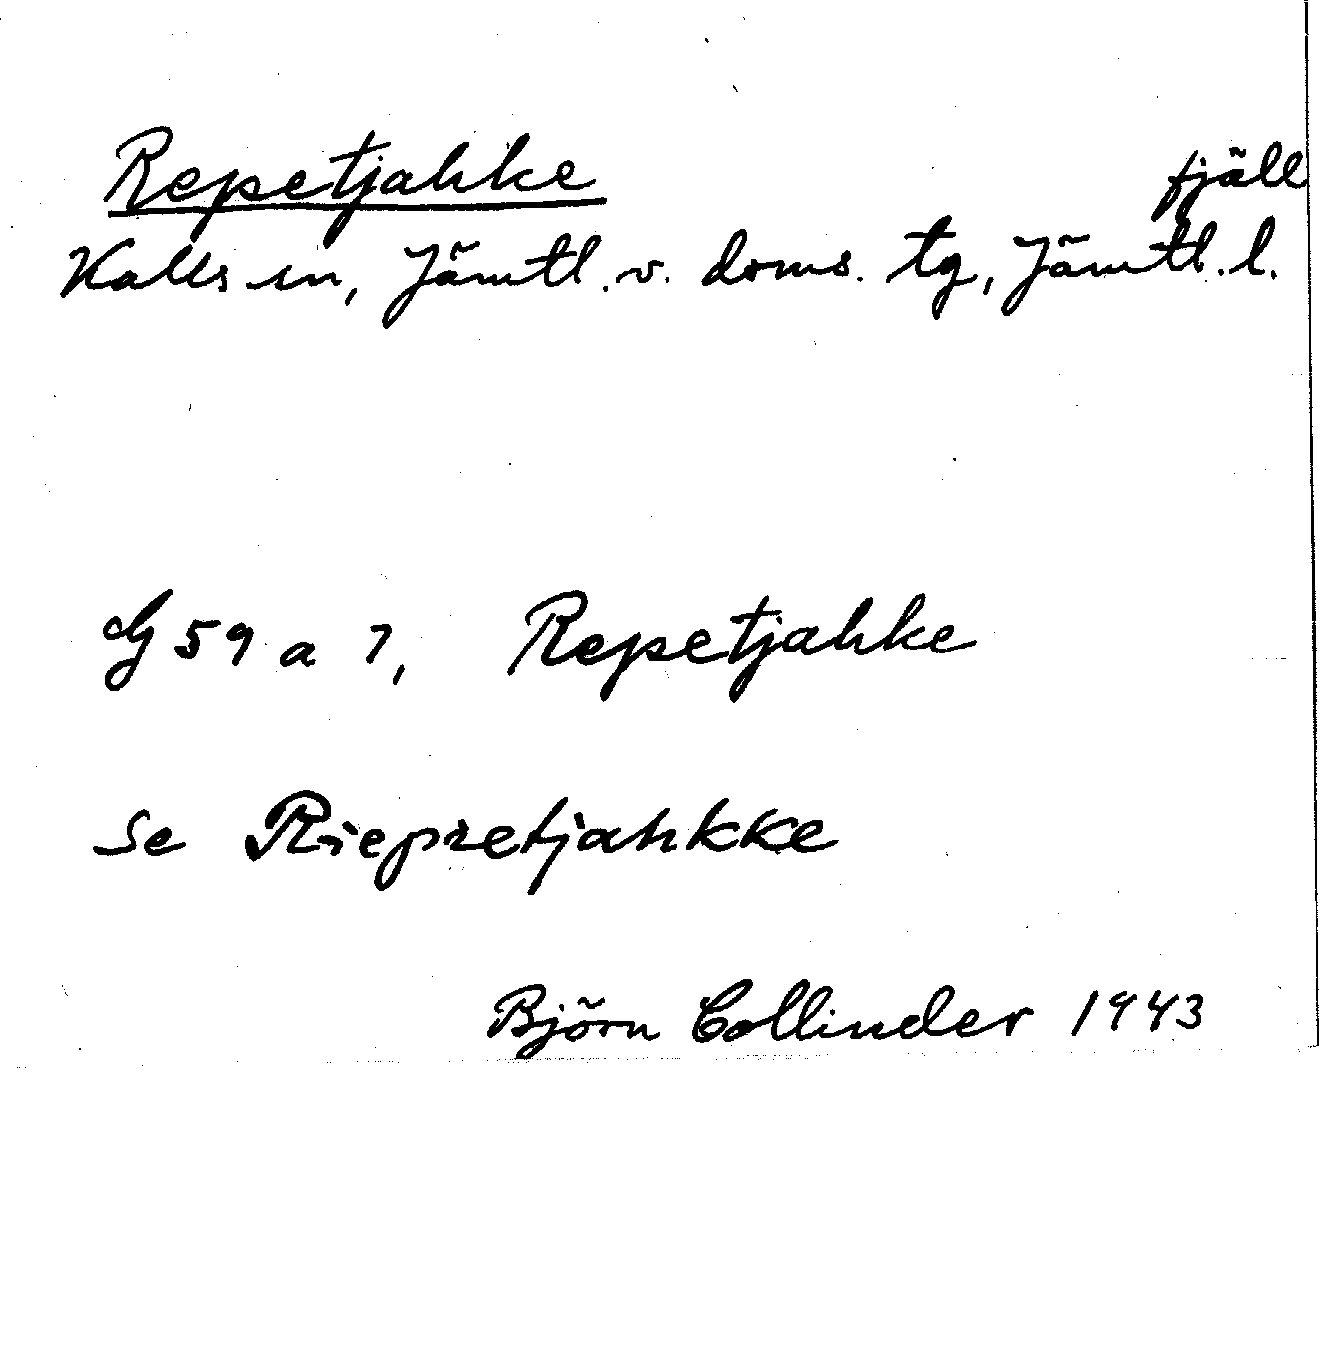 Repetjahke fjäll
Kalls sn, Jämtl. v. doms. tg, Jämtl. l.
G 59 a 7, Repetjahke
Se Riepretjahkke
Björn Collinder 1943